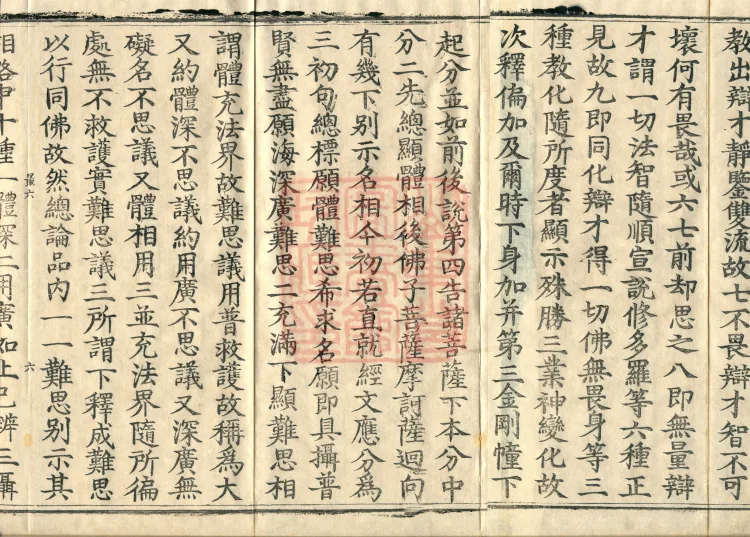 教出辯才靜鑒雙流故七不畏辯才智不可
壞何有畏哉或六七前却思之八即無量辯
才謂一切法智隨順宣說修多羅等六種正
見故九即同化辯才得一切佛無畏身等三
種教化隨所度者顯示殊勝三業神變化故
次釋偏加及爾時下身加并第三金剛幢下
起分並如前後說第四告諸菩薩下本分中
分二先總顯體相後佛子菩薩摩訶薩迴向
有幾下別示名相今初若直就經文應分為
三初句總標願體難思希求名願即具攝普
賢無盡願海深廣難思二充滿下顯難思相
謂體充法界故難思議用普救護故稱為大
又約體深不思議約用廣不思議又深廣無
礙名不思議又體相用三並充法界隨所徧
處無不救護實難思議三所謂下釋成難思
以行同佛故然總論品內一一難思別示其
最六
六
相路中十種一體深二用廣如上已辨三攝